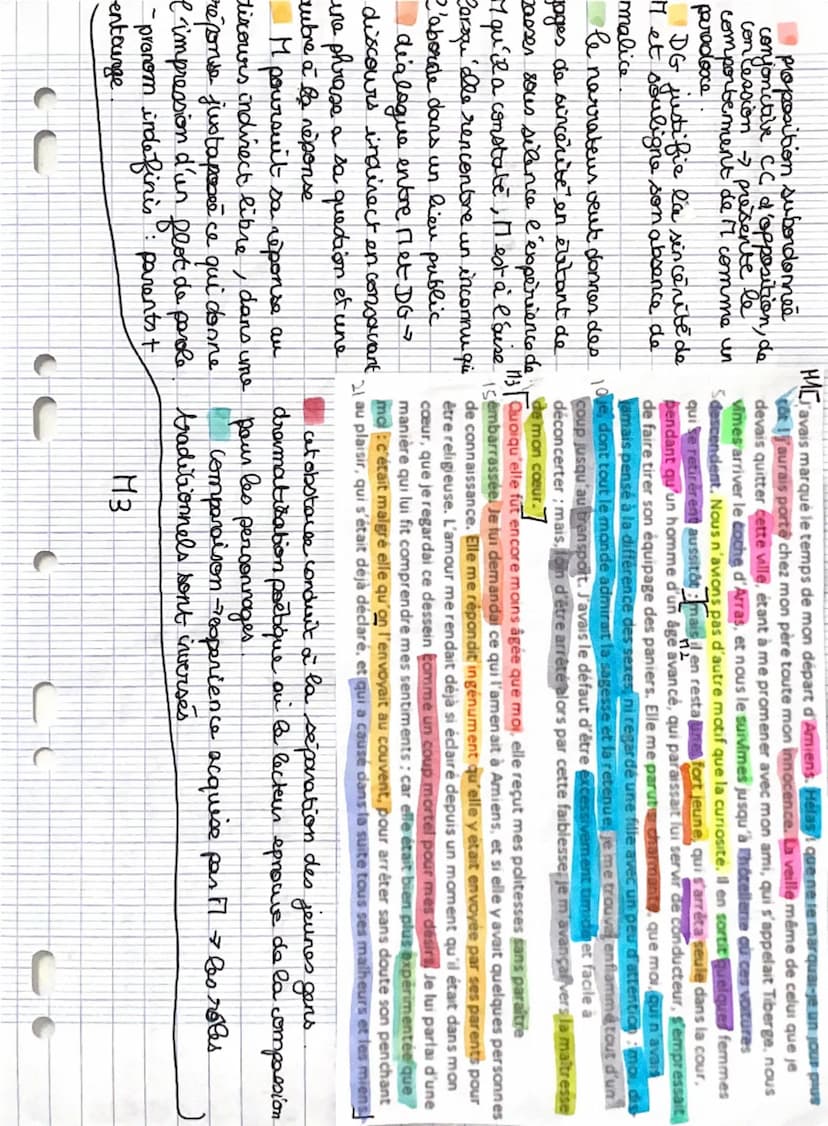 proposition subordonnée
conjonctive CC d'opposition, de
concession → présente le
comportement de M comme un
paradoxe.
DG justifie la sincérité de
M et souligne son absence de
malice.
le narrateur veut donner des
gages de sincérité en évitant de
passer sous silence l'expérience de
M qu'il a constaté, M est à l'aise
lorsqu'elle rencontre un inconnu qui
l'aborde dans un lieu public
dialogue entre M et DG →
discours indirect en consacrant
une phrase a sa question et une
autre à la réponse
M poursuit sa réponse au
discours indirect libre, dans une
réponse juxtaposé ce qui donne
l'impression d'un flot de parole.
- pronom indéfinis : parents +
entourage.
M1 [J'avais marqué le temps de mon départ d'Amiens. Hélas ! que ne le marquai-je un jour plus
tôt ! j'aurais porté chez mon père toute mon innocence. La veille même de celui que je
devais quitter cette ville, étant à me promener avec mon ami, qui s'appelait Tiberge, nous
vîmes arriver le coche d'Arras, et nous le suivîmes jusqu'à l'hôtellerie où ces voitures
5 descendent. Nous n'avions pas d'autre motif que la curiosité. Il en sortit quelques femmes
qui se retirèrent aussitôt ;] [mais il en resta une, fort jeune, qui s'arrêta seule dans la cour,
M2
pendant qu'un homme d'un âge avancé, qui paraissait lui servir de conducteur, s'empressait
de faire tirer son équipage des paniers. Elle me parut si charmante, que moi, qui n'avais
jamais pensé à la différence des sexes, ni regardé une fille avec un peu d'attention ; moi, dis-
10 je, dont tout le monde admirait la sagesse et la retenue, je me trouvai enflammé tout d'un
coup jusqu'au transport. J'avais le défaut d'être excessivement timide et facile à
déconcerter ; mais, loin d'être arrêté alors par cette faiblesse, je m'avançai vers la maîtresse
de mon cœur.]
M3 [Quoiqu'elle fût encore moins âgée que moi, elle reçut mes politesses sans paraître
15 embarrassée. Je lui demandai ce qui l'amenait à Amiens, et si elle y avait quelques personnes
de connaissance. Elle me répondit ingénument qu'elle y était envoyée par ses parents pour
être religieuse. L'amour me rendait déjà si éclairé depuis un moment qu'il était dans mon
cœur, que je regardai ce dessein comme un coup mortel pour mes désirs. Je lui parlai d'une
manière qui lui fit comprendre mes sentiments ; car elle était bien plus expérimentée que
moi : c'était malgré elle qu'on l'envoyait au couvent, pour arrêter sans doute son penchant
21 au plaisir, qui s'était déjà déclaré, et qui a causé dans la suite tous ses malheurs et les miens.]
cet obstacle conduit à la séparation des jeunes gens.
dramatisation poétique où le lecteur éprouve de la compassion
pour les personnages
comparaison → expérience acquise par M → les rôles
traditionnels sont inversés
M3